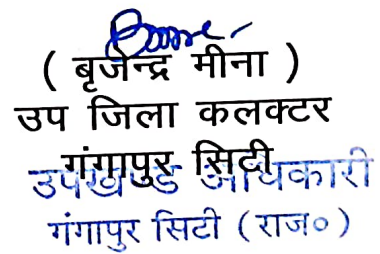 ( बृजेन्द्र मीना )
उप जिला कलक्टर
गंगापुर सिटी
उपखण्ड अधिकारी
गंगापुर सिटी ( राज० )